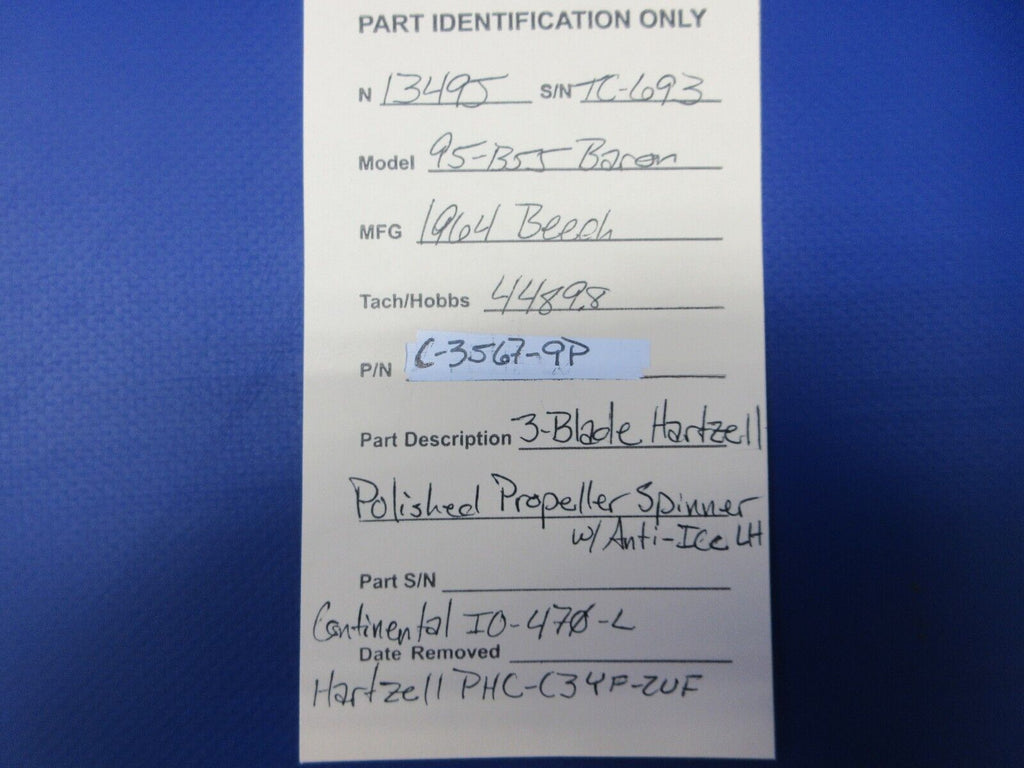 PART IDENTIFICATION ONLY
N 13495 S/N TC-693
Model 95-B55 Baron
MFG 1964 Beech
Tach/Hobbs 4489.8
P/N C-3567-9P
Part Description 3-Blade Hartzell
Polished Propeller Spinner
w/ Anti-Ice LH
Part S/N
Continental IO-470-L
Date Removed
Hartzell PHC-C3YF-2UF